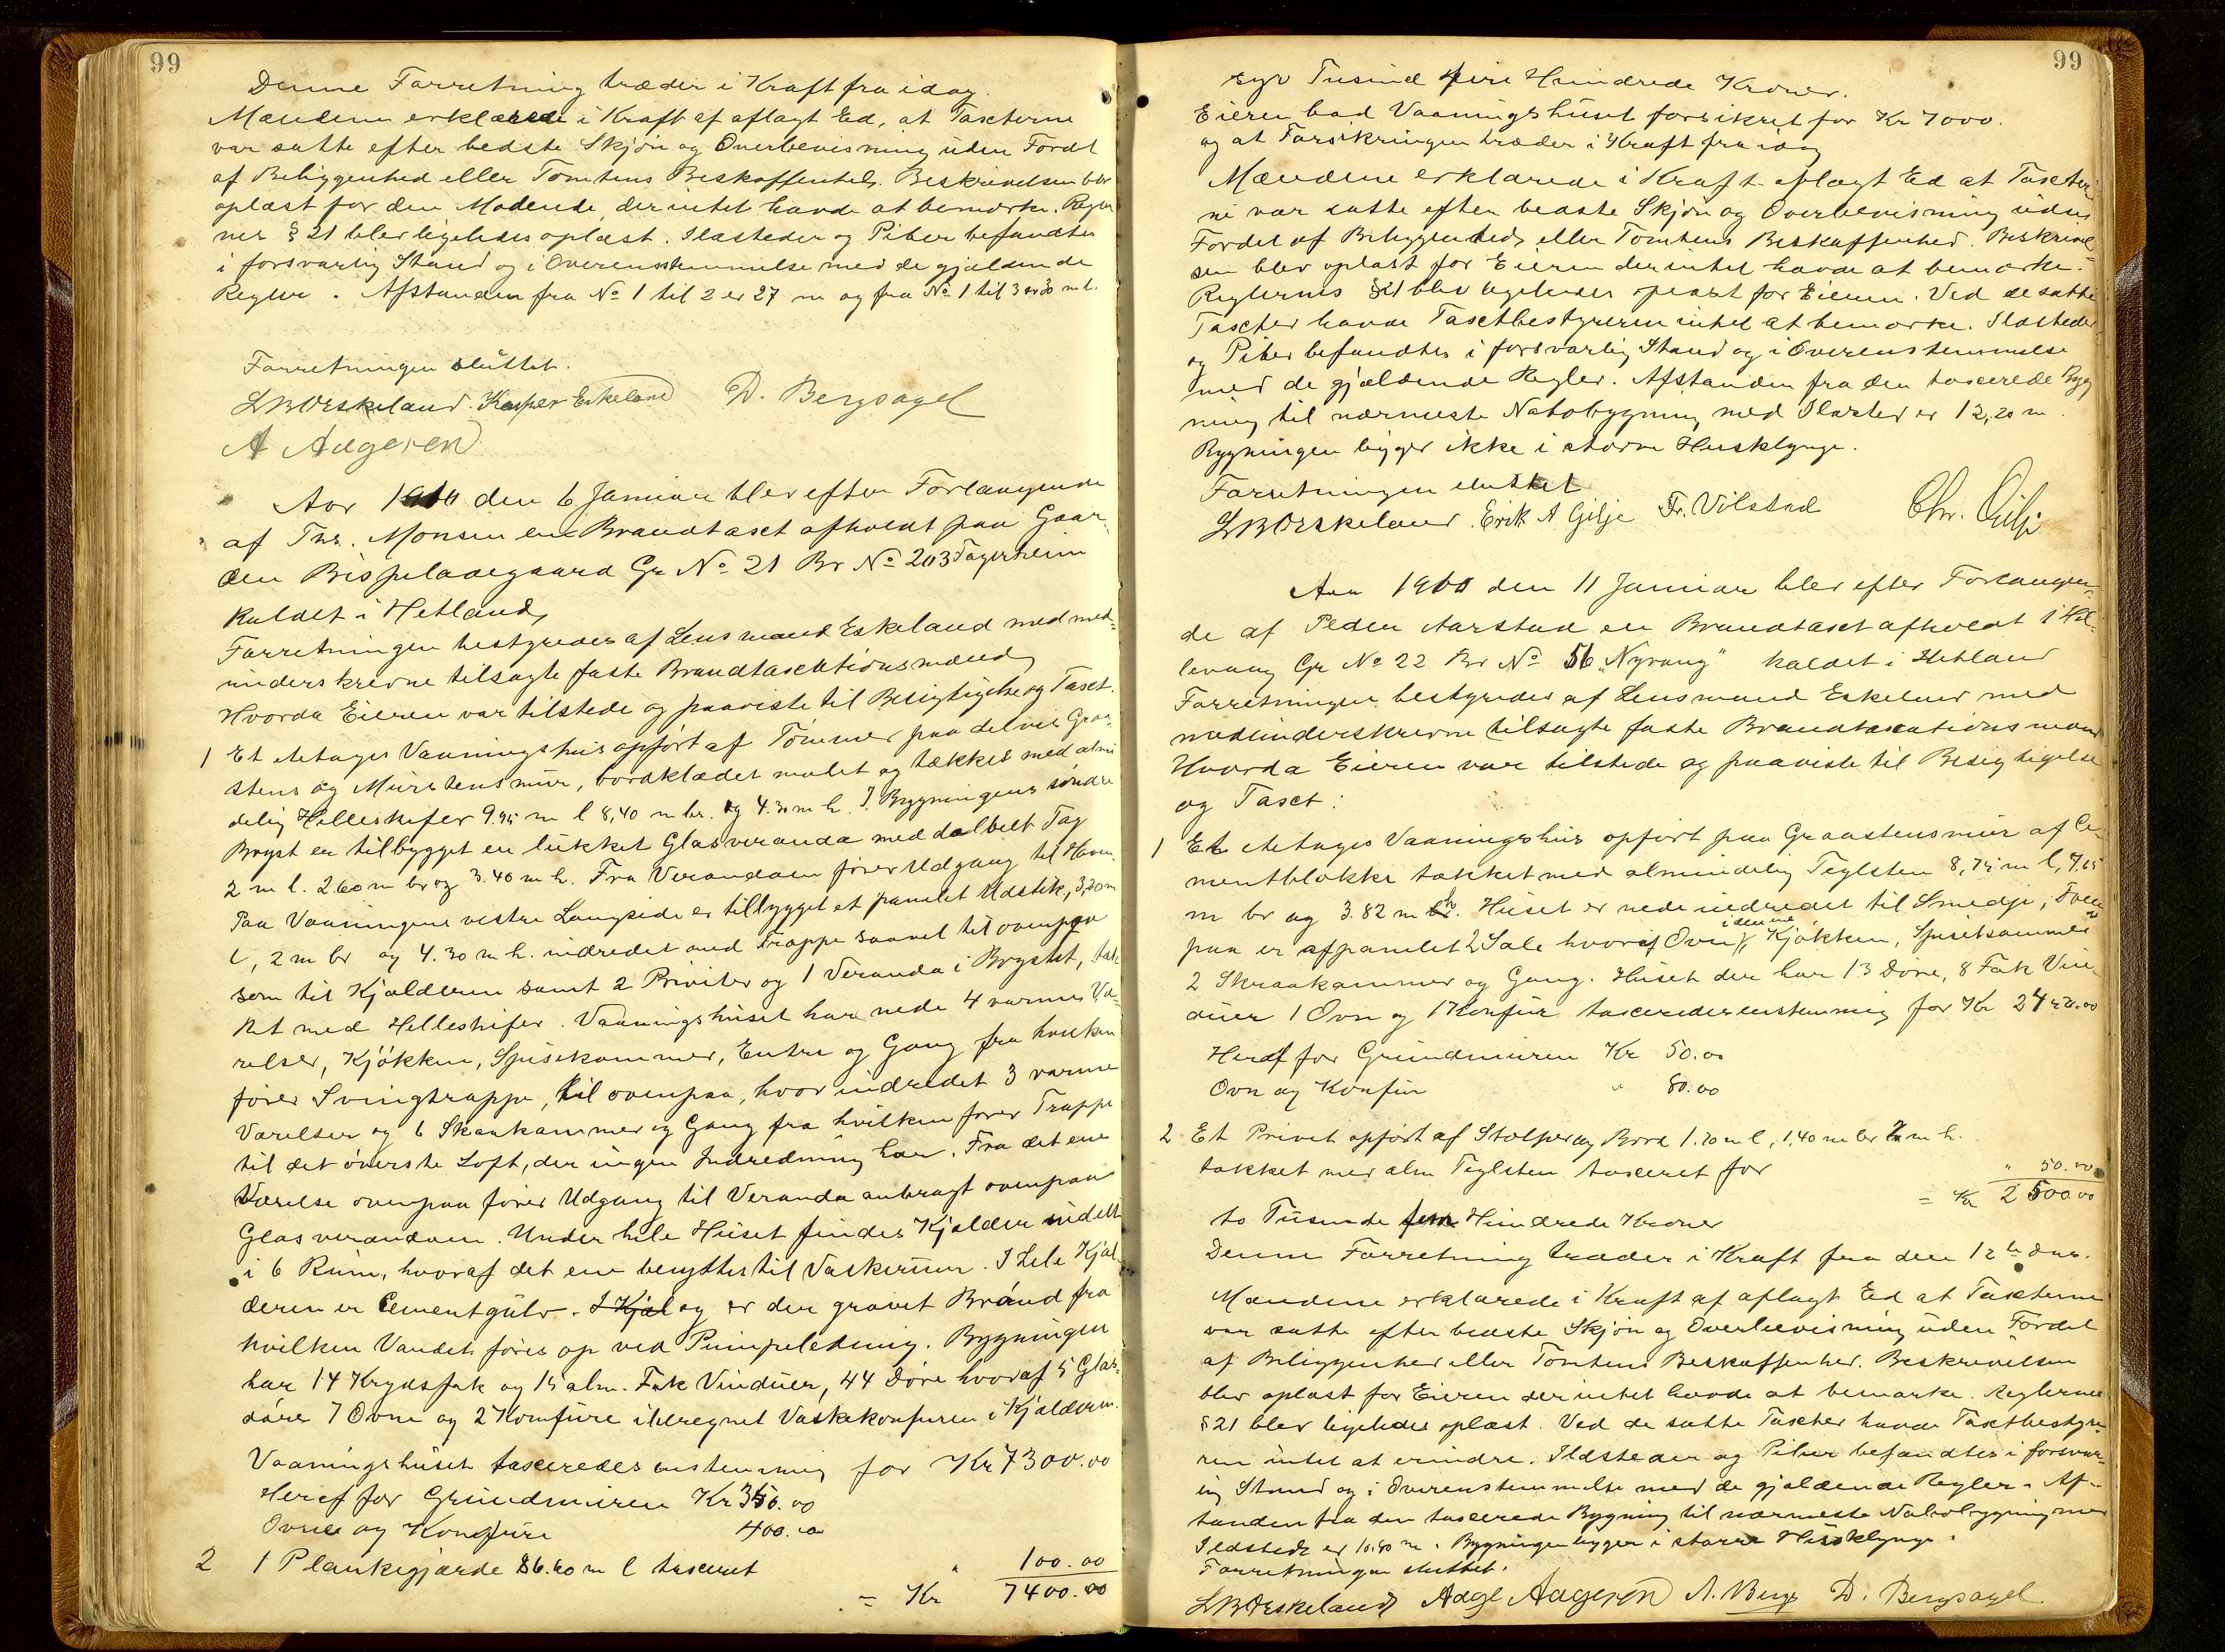 99
Denne Forretning træder i Kraft fra idag.
Mændene erklærede i Kraft af aflagt Ed, at Taxterne
var satte efter bedste Skjøn og Overbevisning uden Fordel
af Beliggenhed eller Tomtens Beskaffenhed. Beskrivelsen blev
oplæst for den Mødende, der intet havde at bemærke. Regler
nes § 21 blev ligeledes oplæst. Ildsteder og Piber befandtes
i forsvarlig Stand og i Overensstemmelse med de gjældende
Regler. Afstanden fra No 1 til 2 er 27 m og fra No 1 til 3 er 30 m l.
Forretningen sluttet.
LBOEskeland. Kasper Eskeland D. Bergsagel
A Aageson
Aar 1910 den 6 Januar blev efter Forlangende
af Ths. Monsen en Brandtaxt afholdt paa Gaar-
den Bispeladegaard Gr No 21 Br No 203 Fagerheim
kaldet i Hetland,
Forretningen bestyredes af Lensmand Eskeland med med-
underskrevne tilsagte faste Brandtaxationsmænd,
Hvorda Eieren var tilstede og paaviste til Besigtigelse og Taxt.
1 Et Etages Vaaningshus opført af Tømmer paa delvis Graa-
stens og Murstensmur, bordklædet malet og tækket med almin
delig Helleskifer 9.95 m l 8,40 m br. og 4.30 m h. I Bygningens søndre
Bryst er tilbygget en lukket Glasveranda med dobbelt Tag
2 m l. 2.60 m br og 3.40 m h. Fra Verandaen fører Udgang til Haven.
Paa Vaaningens vestre Langside er tilbygget et panelet Udstik, 3,20 m
l, 2 m br og 4.30 m h. indredet med Trappe saavel til ovenpaa
som til Kjælderen samt 2 Priveter og 1 Veranda i Brystet, tæk
ket med Helleskifer. Vaaningshuset har nede 4 varme Væ-
relser, Kjøkken, Spisekammer, Entre og Gang fra hvilken
fører Svingtrappe, til ovenpaa, hvor indredet 3 varme
Værelser og 6 Skraakammer og Gang fra hvilken fører Trappe
til det øverste Loft, der ingen Indredning har. Fra det ene
Værelse ovenpaa fører Udgang til Veranda anbragt ovenpaa
Glasverandaen. Under hele Huset findes Kjælder inddelt
i 6 Rum, hvoraf det ene benyttes til Vaskerum. I hele Kjæl
deren er Cementgulv. I Kjæl og er der gravet Brønd fra
hvilken Vandet føres op ved Pumpeledning. Bygningen
har 14 Krydsfak og 15 alm. Fak Vinduer, 44 Døre hvoraf 5 Glas-
døre 7 Ovne og 2 Komfure iberegnet Vaskekomfuren i Kjælderen.
Vaaningshuset taxeredes enstemmig for Kr 7300.00
Heraf for Grundmuren Kr 350.00
Ovne og Komfure 400.00
2 1 Plankegjærde 86.60 m l taxeret " 100.00
= Kr 7400.00
99
syv Tusind fire Hundrede Kroner.
Eieren bad Vaaningshuset forsikret for Kr 7000.
og at Forsikringen træder i Kraft fra idag
Mændene erklærede i Kraft aflagt Ed at Taxter
ne var satte efter bedste Skjøn og Overbevisning uden
Fordel af Beliggenhed, eller Tomtens Beskaffenhed. Beskrivel-
sen blev oplæst for Eieren der intet havde at bemærke.
Reglernes § 21 blev ligeledes oplæst for Eieren. Ved de satte
Taxter havde Taxtbestyreren intet at bemærke. Ildsteder
og Piber befandtes i forsvarlig Stand og i Overenstemmelse
med de gjældende Regler. Afstanden fra den taxerede Byg
ning til nærmeste Nabobygning med Ildsted er 12,20 m.
Bygningen ligger ikke i større Husklynge.
Forretningen sluttet
LBOEskeland. Erik A Gilje Fr. Vilstad Chr. Gilje
Aar 1910 den 11 Januar blev efter Forlangen-
de af Peder Aarstad en Brandtaxt afholdt i Hil-
levaag Gr No 22 Br No 56 "Nyvang" kaldet i Hetland
Forretningen bestyredes af Lensmand Eskeland med
medunderskrevne tilsagte faste Brandtaxationsmænd
Hvorda Eieren var tilstede og paaviste til Besigtigelse
og Taxt:
1 Et Etages Vaaningshus opført paa Graastensmur af Ce-
mentblokke tækket med almindelig Teglsten 8,75 m l, 7,65
m br og 3.82 m h. Huset er nede indredet til Smedje, Oven
paa er afpanelet 2 Sale hvoraf Ovn i denne, Kjøkken, Spisekammer
2 Skraakammer og Gang. Huset der har 13 Døre, 8 Fak Vin-
duer 1 Ovn og 1 Komfur taxeredes enstemmig for Kr 2450.00
Heraf for Grundmuren Kr 50.00
Ovn og Komfur " 80.00
2 Et Privet opført af Stolper og Bord 1.20 m l, 1,40 m br 2 m h.
tækket med alm Teglsten taxeret for " 50.00
= Kr 2500.00
to Tusinde fem Hundrede Kroner
Denne Forretning træder i Kraft fra den 12te ds.
Mændene erklærede i Kraft af aflagt Ed at Taxterne
var satte efter bedste Skjøn og Overbevisning uden Fordel
af Beliggenhed eller Tomtens Beskaffenhed. Beskrivelsen
blev oplæst for Eieren der intet havde at bemærke. Reglernes
§ 21 blev ligeledes oplæst. Ved de satte Taxter havde Taxtbestyre-
ren intet at erindre. Ildsteder og Piber befandtes i forsvar-
lig Stand og i Overenstemmelse med de gjældende Regler. Af-
tanden fra den taxerede Bygning til nærmeste Nabobygning med
Ildsted er 10.80 m. Bygningen ligger i større Husklynge.
Forretningen sluttet.
LBOEskeland Aage Aageson A. Berg D. Bergsagel